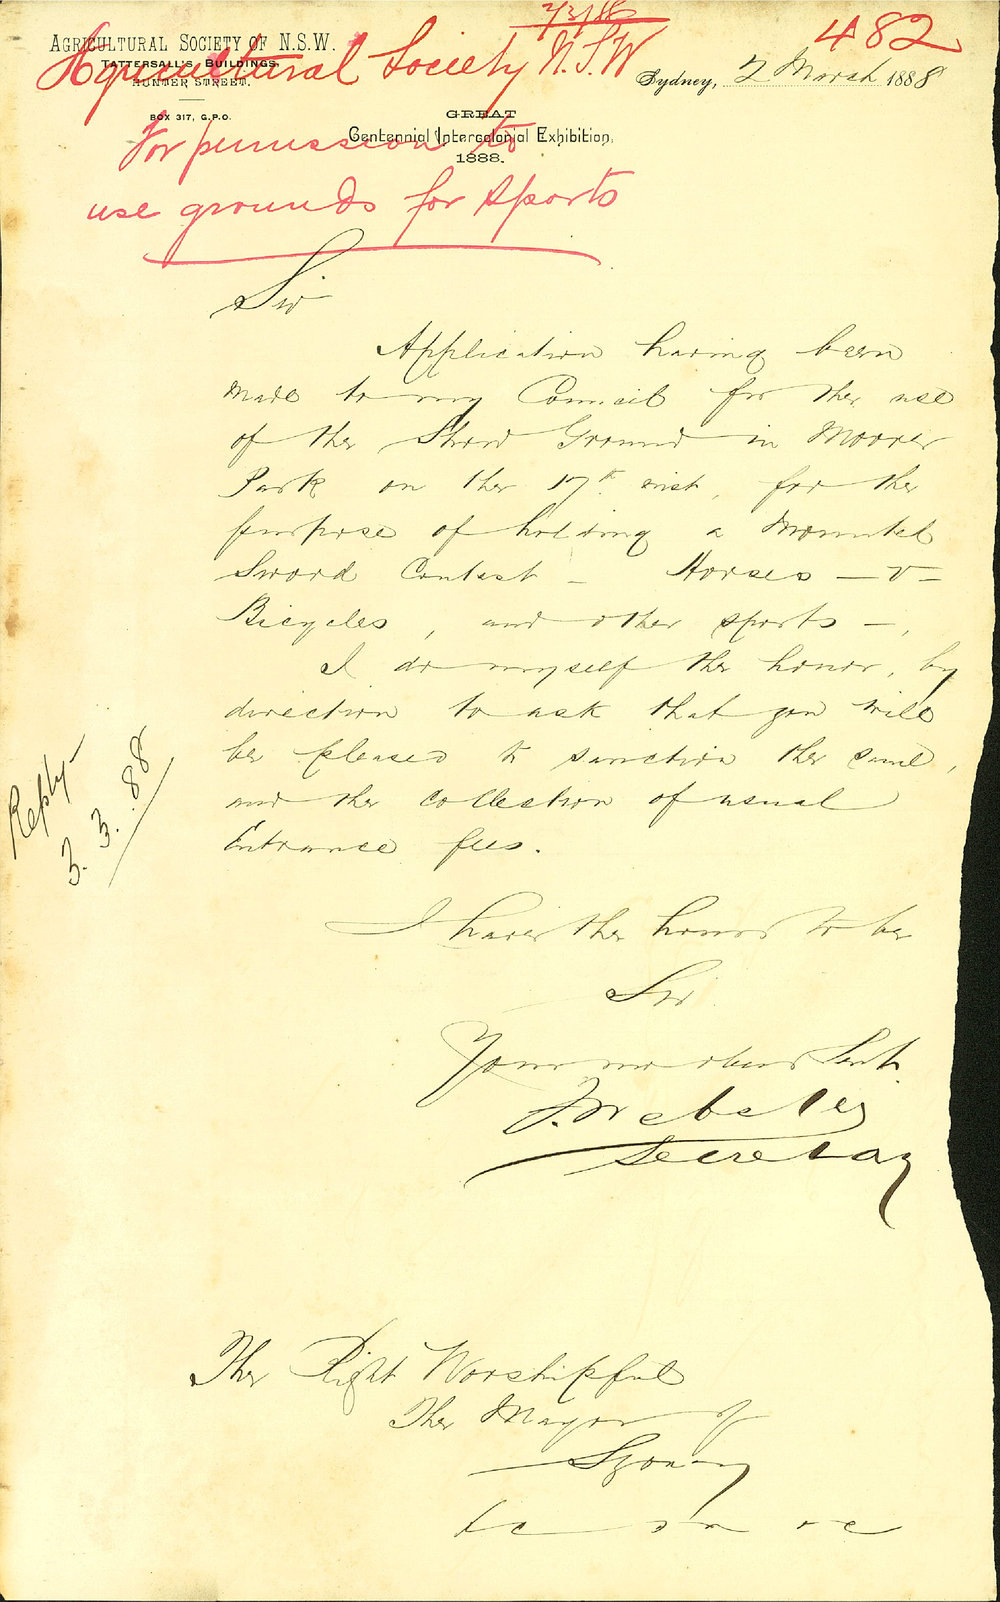 2/3/88
482
AGRICULTURAL SOCIETY OF N.S.W.
TATTERSALL'S BUILDINGS,
HUNTER STREET.
BOX 317, G.P.O.
Sydney, 2 March 1888
GREAT
Centennial Intercolonial Exhibition,
1888.
Agricultural Society N.S.W
For permission to
use grounds for sports
Sir
Application having been
made to my Council for the use
of the Show Ground in Moore
Park on the 17th inst, for the
purpose of holding a Mounted
Sword Contest – Horses – v –
Bicycles, and other sports –,
I do myself the honor, by
direction to ask that you will
be pleased to sanction the same,
and the collection of usual
Entrance fees.
Reply
3.3.88
I have the honor to be
Sir
Your mo obed Servt
F. Webster
Secretary
The Right Worshipful
The Mayor of
Sydney